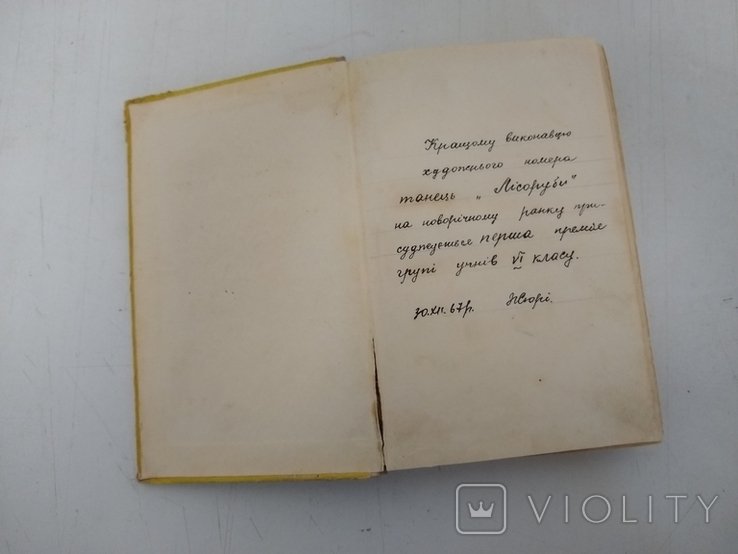 Кращому виконавцю
художнього номера
танець „Лісоруби"
на новорічному ранку при-
суджується перша премія
групі учнів VI класу.
30.XII.67р. Жюрі.
VIOLITY